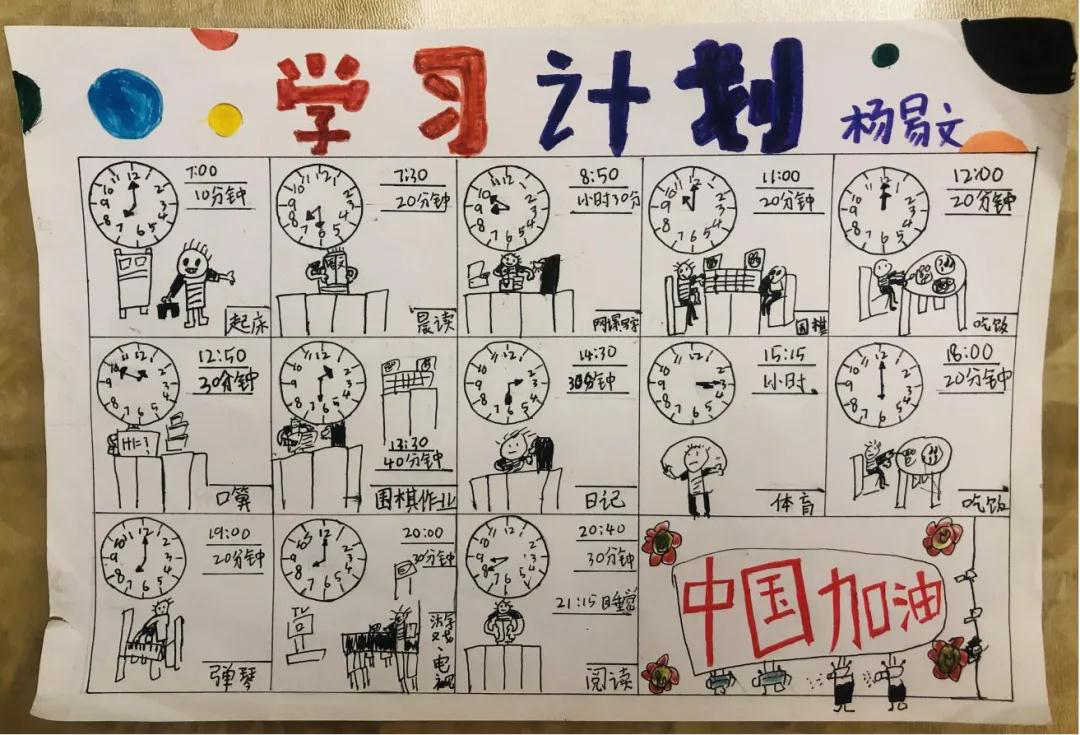 学习计划
杨易文
7:00
10分钟
起床
7:30
20分钟
晨读
8:50
1小时30分
11:00
20分钟
围棋
12:00
20分钟
吃饭
12:50
30分钟
1+1=?
口算
13:30
40分钟
围棋作业
14:30
30分钟
日记
15:15
1小时
体育
18:00
20分钟
吃饭
19:00
20分钟
弹琴
20:00
30分钟
TV
电视
20:40
30分钟
21:15睡觉
阅读
中国加油